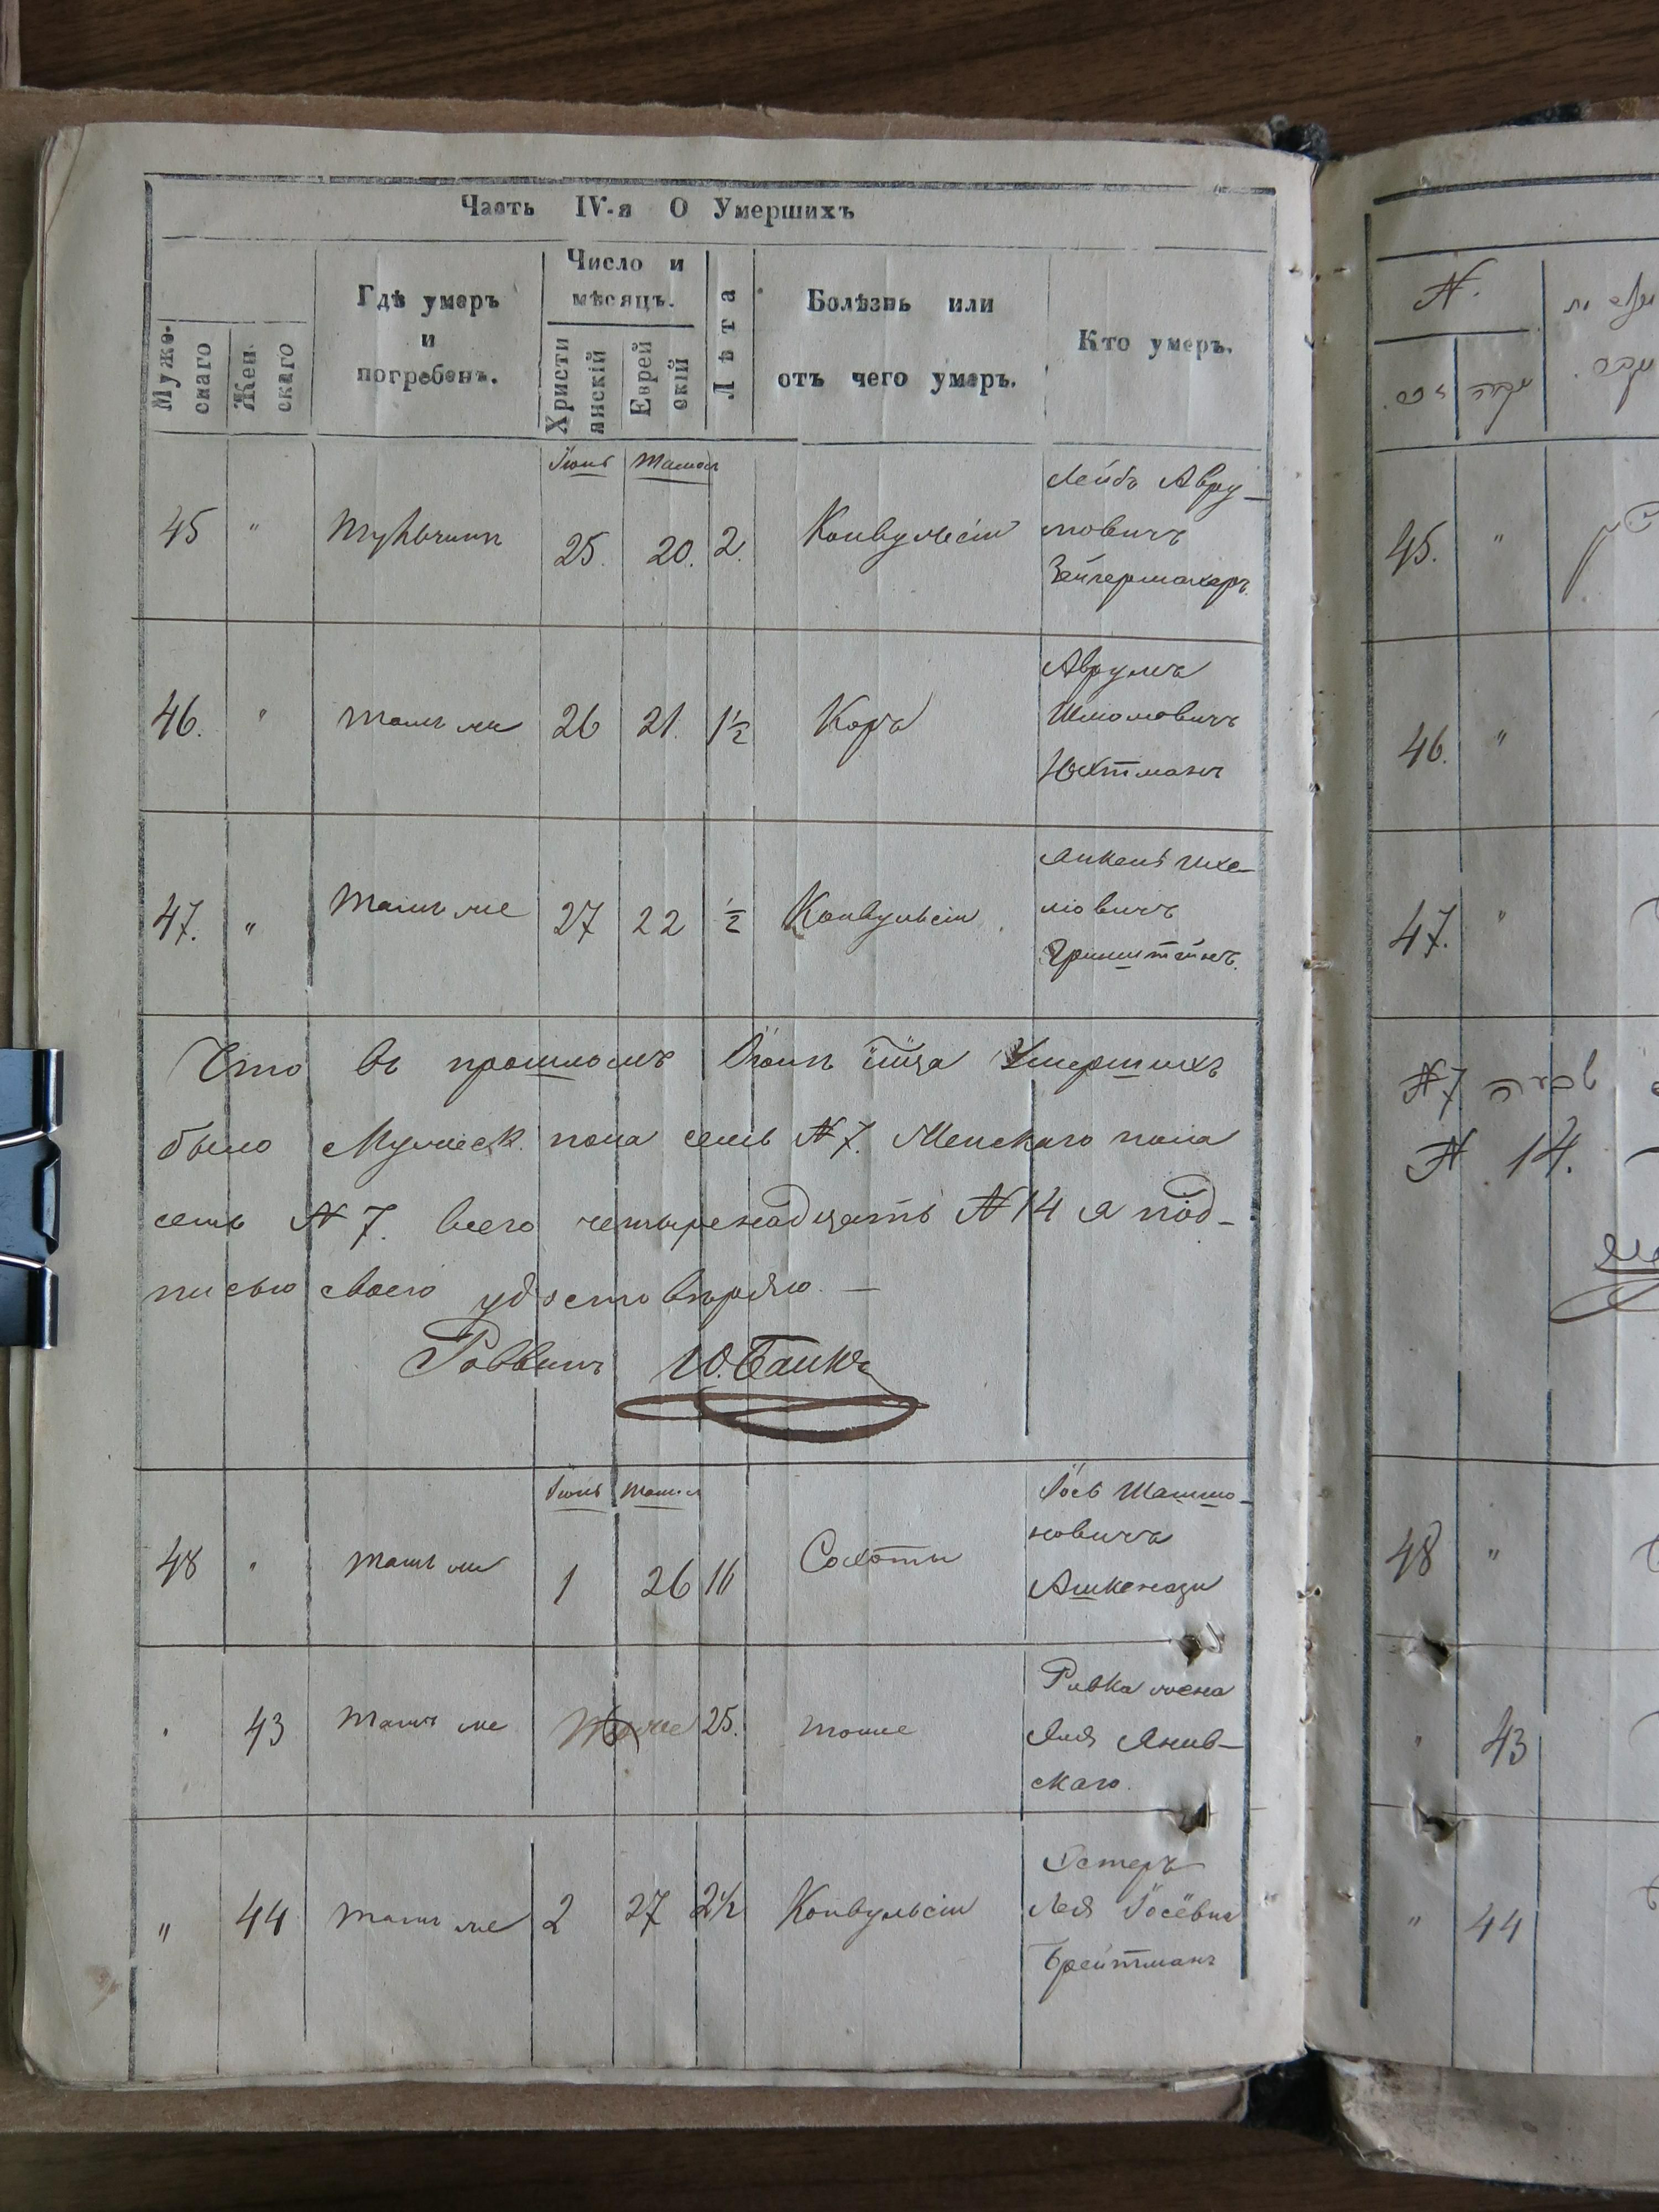 Часть IV-я О Умершихъ
Мужескаго
Женскаго
Гдѣ умеръ
и
погребенъ.
Число и
мѣсяцъ.
Христианскій
Еврейскій
Лѣта
Болѣзнь или
отъ чего умеръ.
Кто умеръ.
Іюнь
45 " 25. 20. 2. Конвульсіи
Лейбъ Авру-
мовичъ
Зейгермахеръ.
46. " тамъ же 26 21. 1½ Корь
Аврумъ
Шломовичъ
Юхтманъ
47. " Тамъ же 27 22 ½ Конвульсіи
Янкель Ихе-
ліовичъ
Гринштейнъ.
Что въ прошломъ Іюнѣ м̃ца Умершихъ
было Мужеск. пола семь № 7. Женскаго пола
семь № 7. всего четыренадцать № 14 я под-
писью своею удостовѣряю. —
Раввинъ Ю. Банкъ
Іюль
48 " тамъ же 1 26 Сохоты
Іось
новичъ
Ашкенази
43 тамъ же тоже 25. тоже
Ривка жена
Янив-
скаго.
" 44 тамъ же 2 27 2½ Конвульсіи
Эстеръ
Лея Іосёвна
Брейтманъ
№.
45. "
46. "
47. "
№ 7
№ 14.
48 "
43
" 44